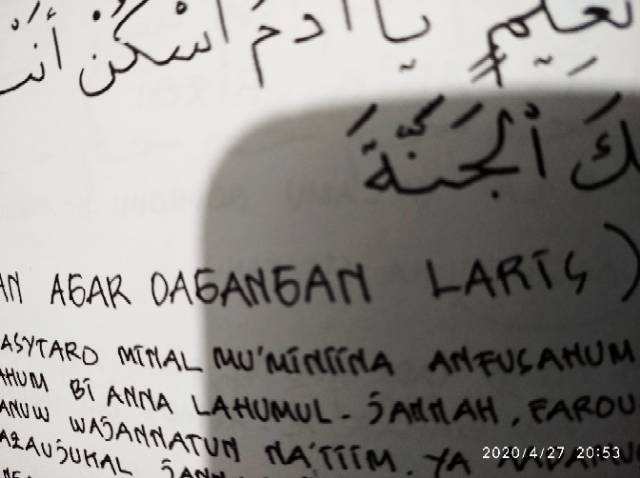 نَعِيمٍ يَا اَدَمُ اسْكُنْ أَنْتَ
لَكَ الْجَنَّةَ
AN AGAR DAGANGAN LARIS)
ASYTARO MINAL MU'MINIINA ANFUSAHUM
AHUM BI ANNA LAHUMUL-JANNAH, FAROU
ANUW WAJANNATUN NA'IIIM. YA AADAMU
AZAUJUKAL JANN
2020/4/27 20:53